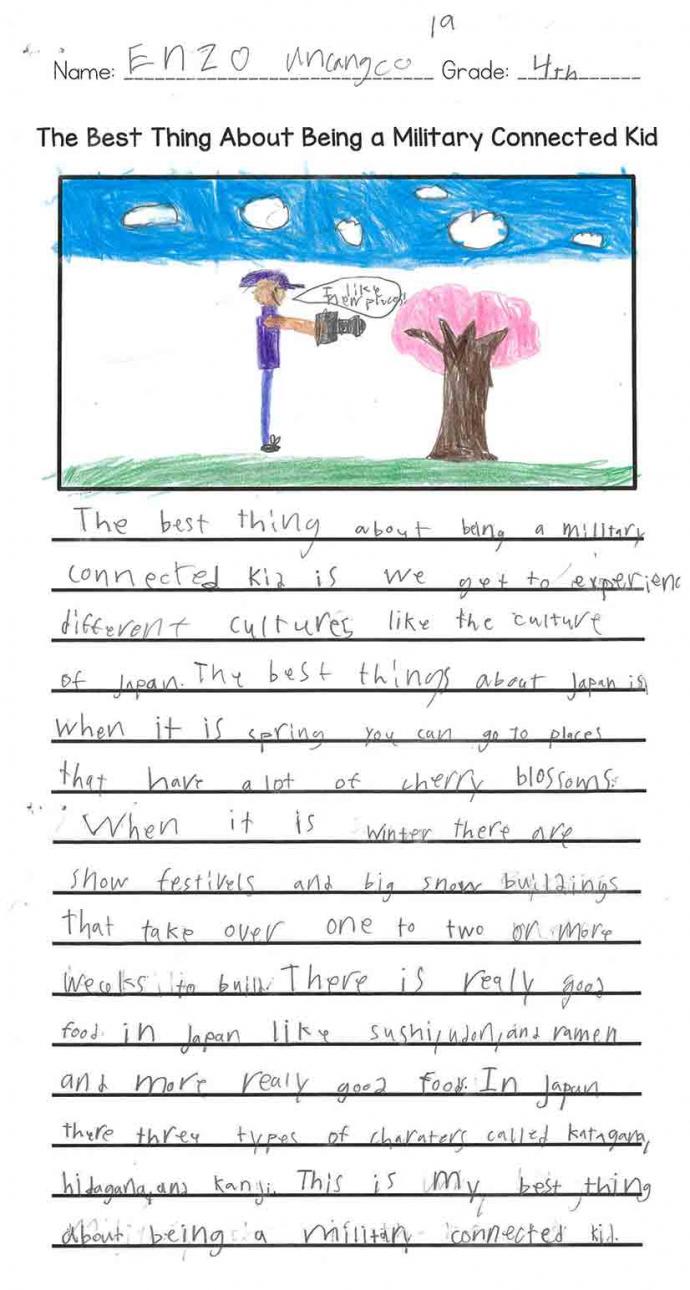 19
Name: ENZO Uncangco Grade: 4th
The Best Thing About Being a Military Connected Kid
I like
new places!
The best thing about being a military
connected kid is we get to experienc
different cultures like the culture
of Japan. The best things about Japan is
when it is spring you can go to places
that have a lot of cherry blossoms.
When it is winter there are
snow festivels and big snow buildings
that take over one to two or more
weeks to build. There is realy good
food in Japan like sushi, udon, and ramen
and more realy good food. In Japan
there three types of charaters called katagana,
hidagana, and kanji. This is my best thing
about being a military connected kid.